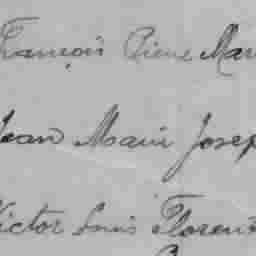 François Pierre Mar
Jean Marie Josep
Victor Louis Floren